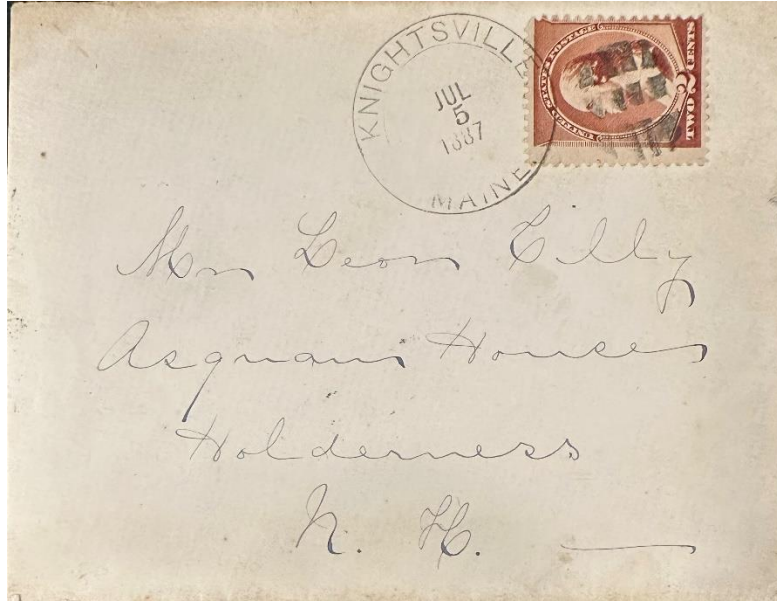 KNIGHTSVILLE
JUL
5
1887
MAINE.
UNITED STATES POSTAGE
2
TWO CENTS
Mrs Leon Tilly
Asquam House
Holderness
N. H.